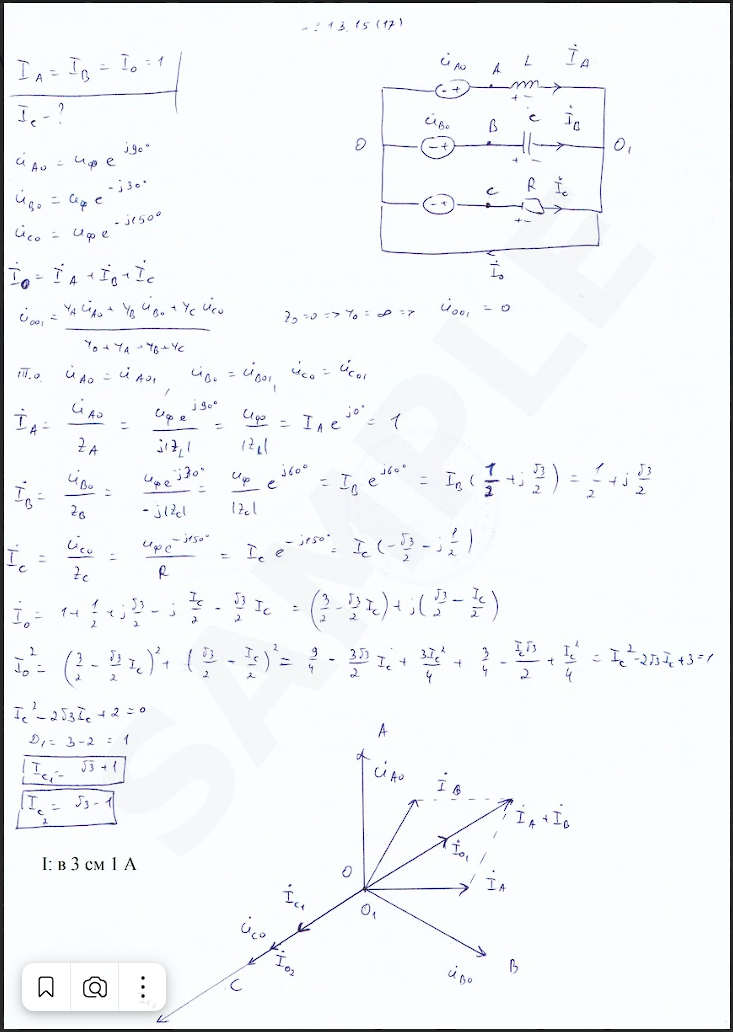 13.15 (17)
I_A = I_B = I_0 = 1
I_C - ?
U̇_A0 = U_ф e^{j90°}
U̇_B0 = U_ф e^{-j30°}
U̇_C0 = U_ф e^{-j150°}
İ_0 = İ_A + İ_B + İ_C
U̇_001 = (Y_A U̇_A0 + Y_B U̇_B0 + Y_C U̇_C0) / (Y_0 + Y_A + Y_B + Y_C)   Z_0 = 0 => Y_0 = ∞ => U̇_001 = 0
Т.о. U̇_A0 = U̇_A01, U̇_B0 = U̇_B01, U̇_C0 = U̇_C01
İ_A = U̇_A0 / Z_A = U_ф e^{j90°} / j|Z_L| = U_ф / |Z_L| = I_A e^{j0°} = 1
İ_B = U̇_B0 / Z_B = U_ф e^{-j30°} / -j|Z_C| = U_ф / |Z_C| e^{j60°} = I_B e^{j60°} = I_B (1/2 + j √3/2) = 1/2 + j √3/2
İ_C = U̇_C0 / Z_C = U_ф e^{-j150°} / R = I_C e^{-j150°} = I_C (-√3/2 - j 1/2)
İ_0 = 1 + 1/2 + j √3/2 - j I_C/2 - √3/2 I_C = (3/2 - √3/2 I_C) + j(√3/2 - I_C/2)
I_0² = (3/2 - √3/2 I_C)² + (√3/2 - I_C/2)² = 9/4 - 3√3/2 I_C + 3I_C²/4 + 3/4 - I_C√3/2 + I_C²/4 = I_C² - 2√3 I_C + 3 = 1
I_C² - 2√3 I_C + 2 = 0
D_1 = 3 - 2 = 1
I_C1 = √3 + 1
I_C2 = √3 - 1
I: в 3 см 1 А
U̇_A0 A L İ_A
- + + -
O U̇_B0 B C İ_B O_1
- + + -
C R İ_C
- + + -
İ_0
A
U̇_A0 İ_B
İ_A + İ_B
İ_01
O İ_A
O_1
İ_C1
U̇_C0
İ_02
C U̇_B0 B
SAMPLE